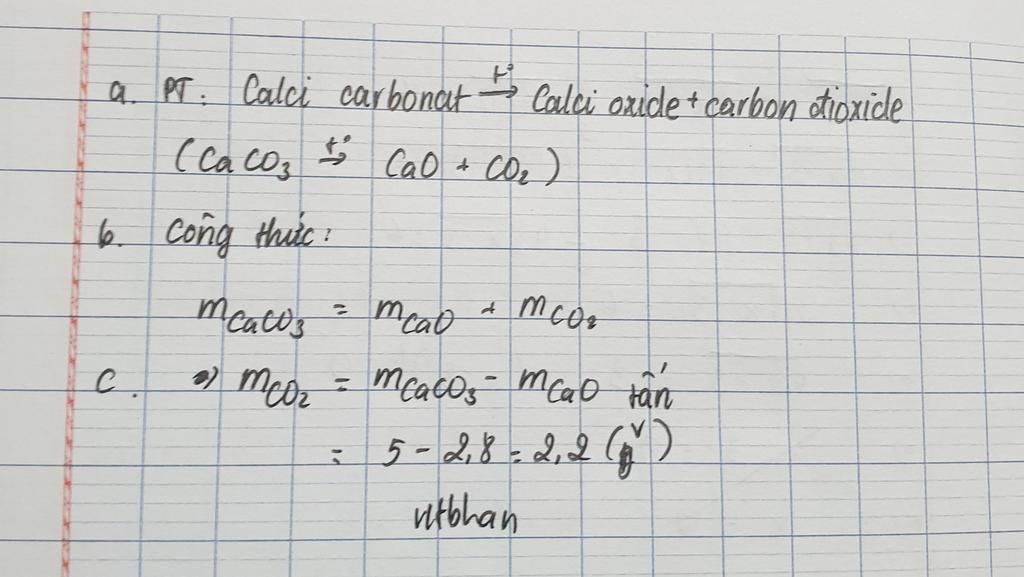 a. PT: Calci carbonat t° → Calci oxide + carbon dioxide
(CaCO₃ t° → CaO + CO₂)
b. Công thức:
mCaCO₃ = mCaO + mCO₂
c. => mCO₂ = mCaCO₃ - mCaO tấn
= 5 - 2,8 = 2,2 ( )
ntbhan